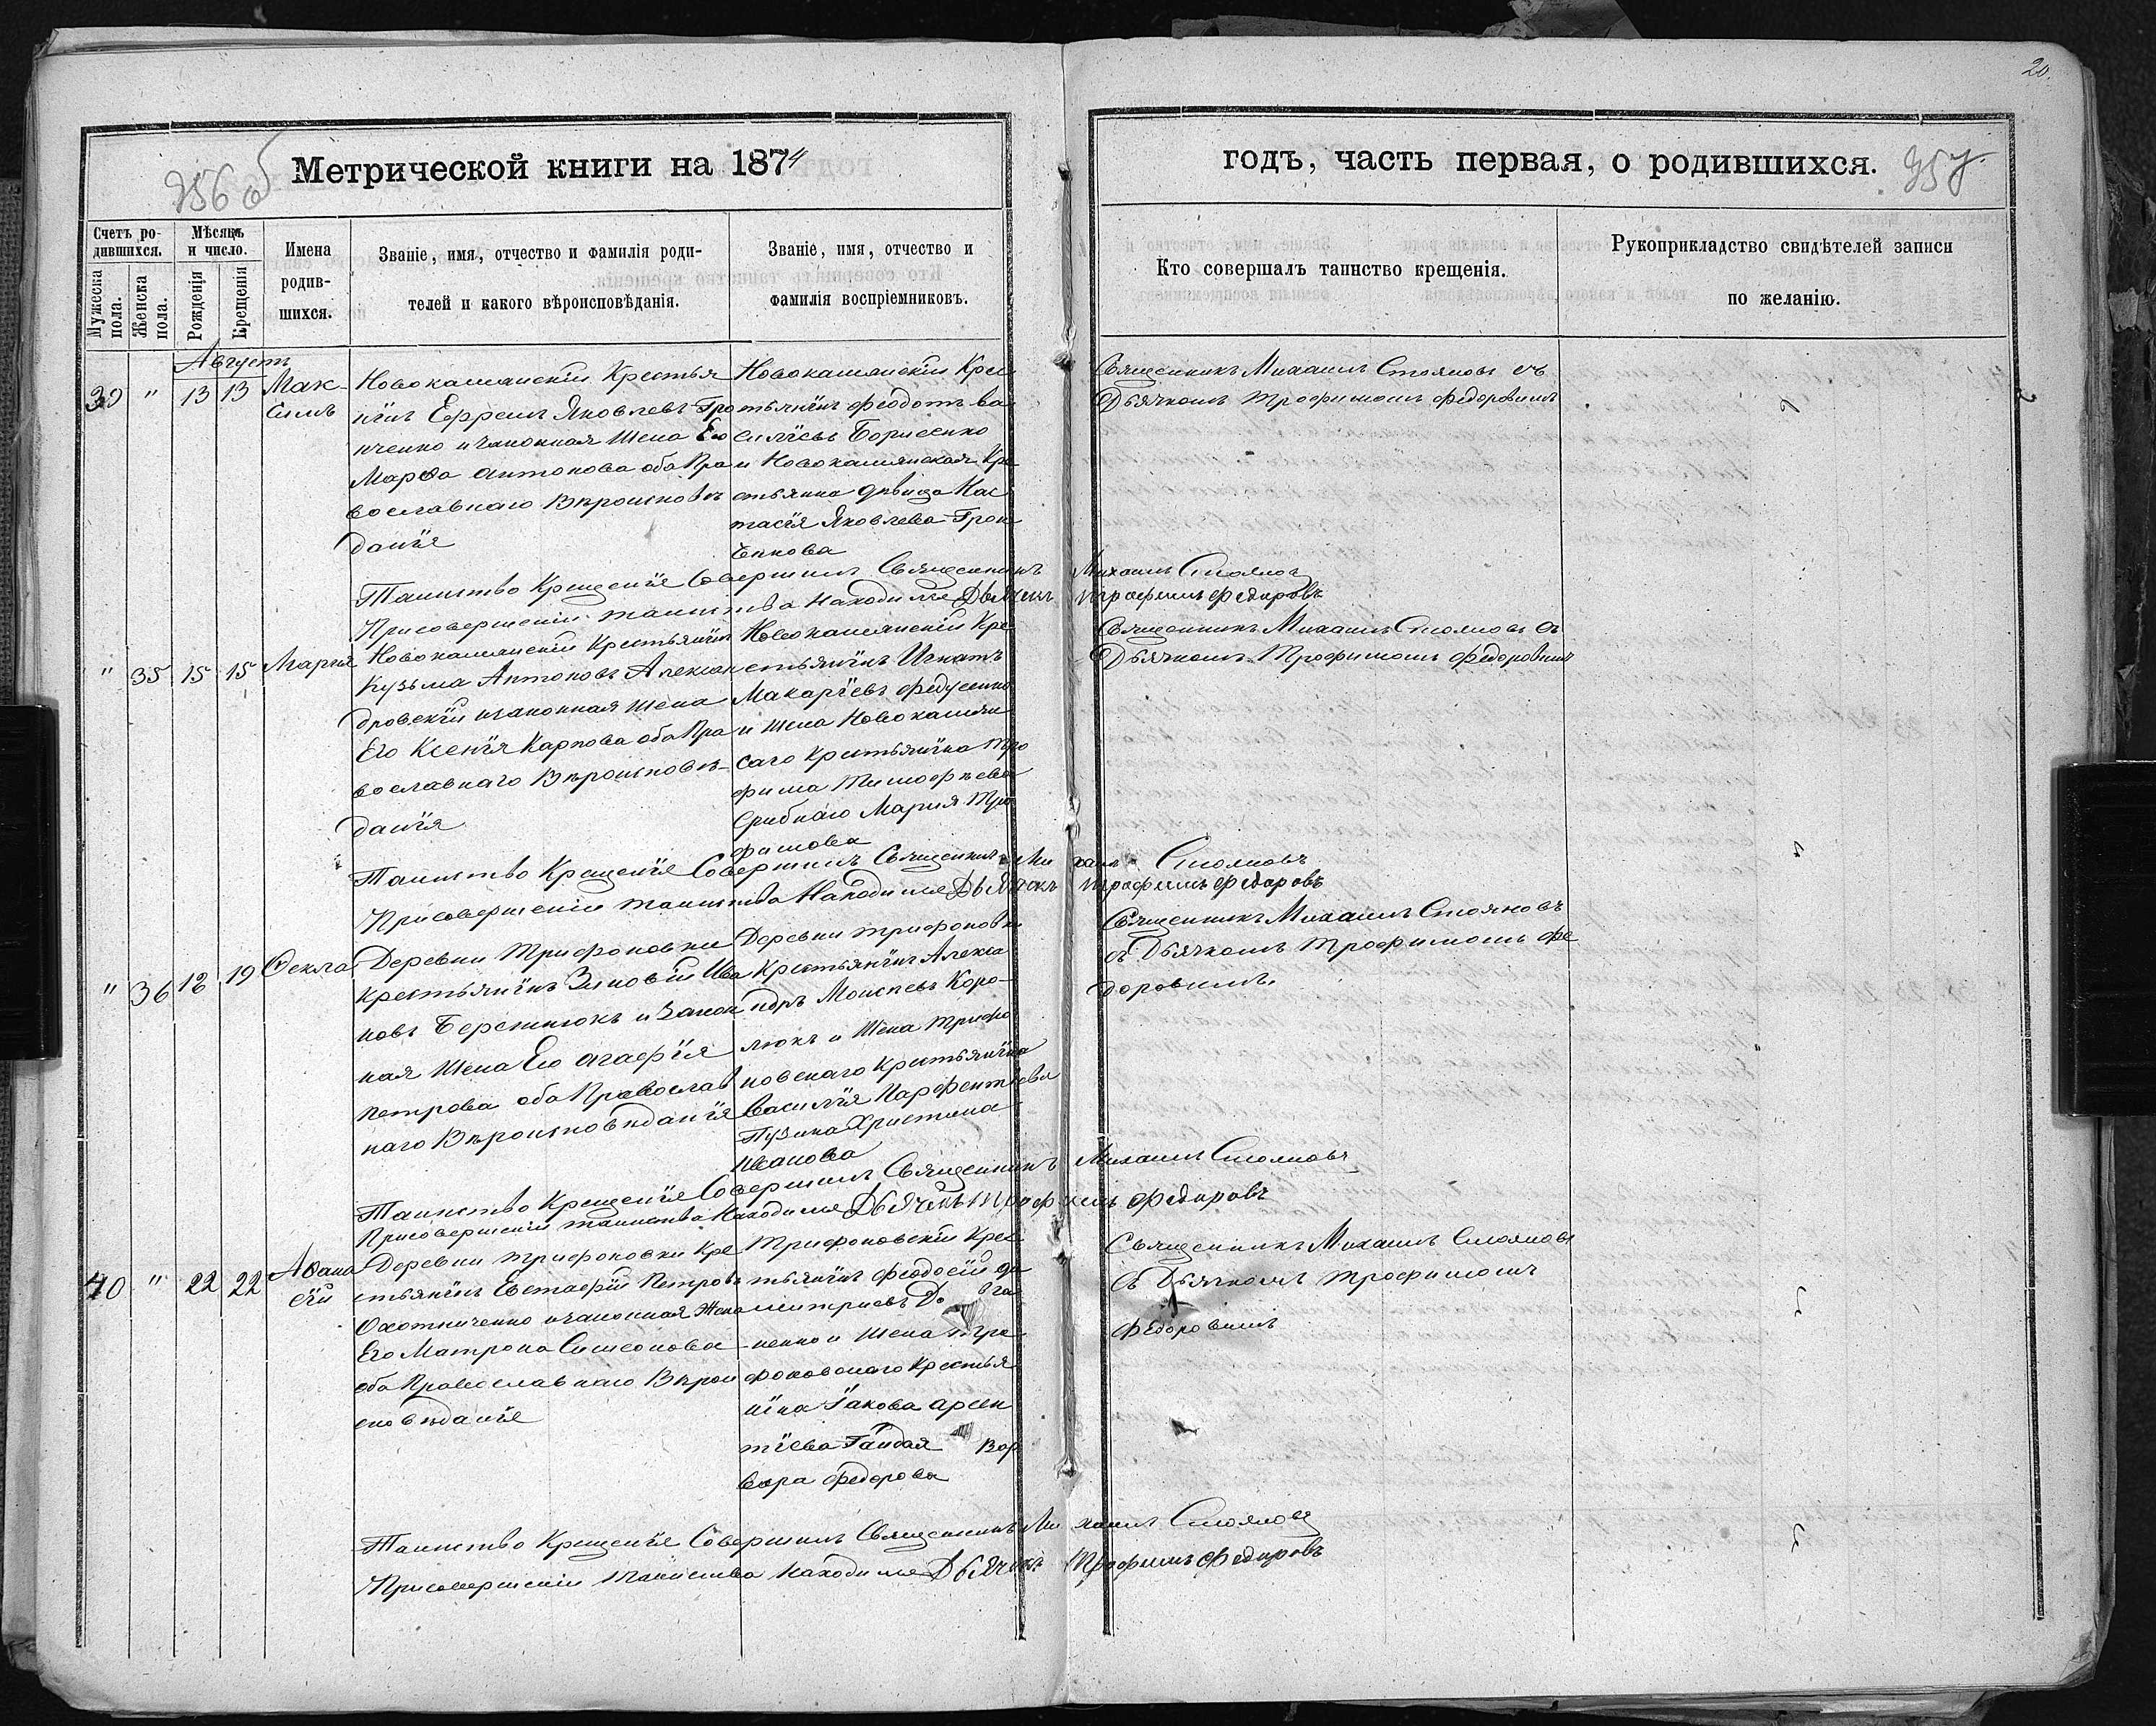 20.
256 об
Метрической книги на 1874
годъ, часть первая, о родившихся.
257
Счетъ ро-
дившихся.
Мужеска
пола.
Женска
пола.
Мѣсяцъ
и число.
Рожденія
Крещенія
Имена
родив-
шихся.
Званіе, имя, отчество и фамилія роди-
телей и какого вѣроисповѣданія.
Званіе, имя, отчество и
фамилія воспріемниковъ.
Кто совершалъ таинство крещенія.
Рукоприкладство свидѣтелей записи
по желанію.
Августъ
39 " 13 13
Мак-
симъ
Новокаменскій Крестья
нинъ Ефремъ Яковлевъ Гро
нченко изаконная жена Ео
Марѳа антонова оба Пра
вославнаго Вѣроисповѣ
данія
Новокаменскій Крес
тьянинъ феодотъ ва
силіевъ Борисенко
и Новокаменская Кре
стьянка дѣвица Нас
тасія Яковлева Грон
ченкова
Священникъ Михаилъ Стояновъ съ
Дьячкомъ Трофимомъ Федоровымъ
Таинство Крещенія Совершилъ Священникъ Михаилъ Стояновъ
Присовершеніи таинства Находился Дьячекъ трофимъ федоровъ
" 35 15 15
Марія
Новокаменскій Крестьянинъ
Кузьма Антоновъ Алексан
дровскій изаконная жена
Его Ксенія Карпова оба Пра
вославнаго Вѣроисповѣ-
данія
Новокаменскій Кре
стьянинъ Игнатъ
Макаріевъ федусенко
и жена Новокамен
саго крестьянина Тро
фима Тимофѣева
Срибнаго Мария Тро
фимова
Священникъ Михаилъ Стояновъ съ
Дьячкомъ Трофимомъ Федоровымъ
Таинство Крещенія Совершилъ Священникъ Михаилъ Стояновъ
Присовершеніи таинства Находился Дьячекъ трофимъ федоровъ
" 36 18 19
Ѳекла
Деревни Трифоновки
крестьянинъ Зиновій Ива
новъ Бережнюкъ и закон
ная жена Ео агафія
петрова оба Православ
наго Вѣроисповѣданія
Деревни трифоновки
Крестьянинъ Алекса
ндръ Моисѣевъ Коро-
люкъ и жена трифо
новскаго Крестьянина
василія Парфентіева
Пузика Христина
Иванова
Священникъ Михаилъ Стояновъ
съ Дьячкомъ Трофимомъ Фе
доровымъ.
Таинство Крещенія Совершилъ Священникъ Михаилъ Стояновъ
Присовершеніи таинства Находился Дьячекъ трофимъ федоровъ
40 " 22 22
Аѳана
сій
Деревни трифоновки Кре
стьянинъ Евстафій Петровъ
Охотниченко изаконная Жена
Его Матрона Симеонова
оба Православнаго Вѣрои
сповѣданія
Трифоновскій Крес
тьянинъ феодосій ди
митриевъ До вга
ненко и жена три
фоновскаго Крестья
нина Іакова арсен
тіева Гайдая Вар
вара федорова
Священникъ Михаилъ Стояновъ
съ Дьячкомъ трофимомъ
Федоровымъ
Таинство Крещенія Совершилъ Священникъ Михаилъ Стояновъ
Присовершеніи таинства Находился Дьячекъ Трофимъ федоровъ